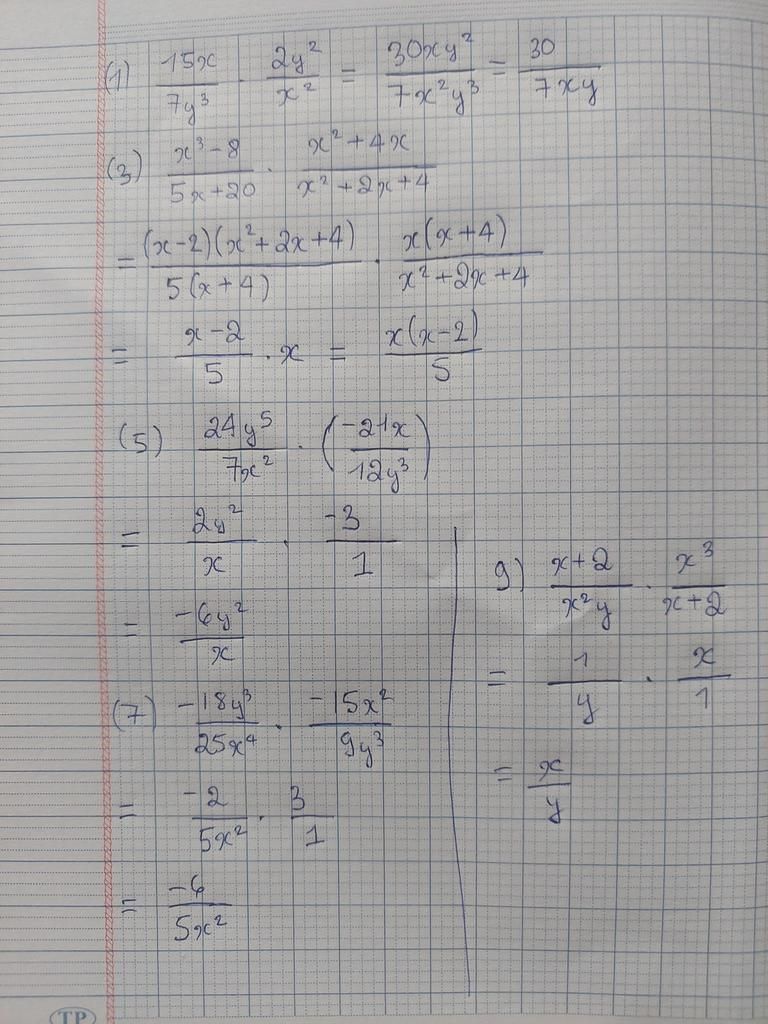 (1) 15x/7y³ · 2y²/x² = 30xy²/7x²y³ = 30/7xy
(3) x³-8/5x+20 · x²+4x/x²+2x+4
= (x-2)(x²+2x+4)/5(x+4) · x(x+4)/x²+2x+4
= x-2/5 · x = x(x-2)/5
(5) 24y⁵/7x² · (-21x/12y³)
= 2y²/x · -3/1
= -6y²/x
(7) -18y³/25x⁴ · -15x²/9y³
= -2/5x² · 3/1
= -6/5x²
9) x+2/x²y · x³/x+2
= 1/y · x/1
= x/y
TP